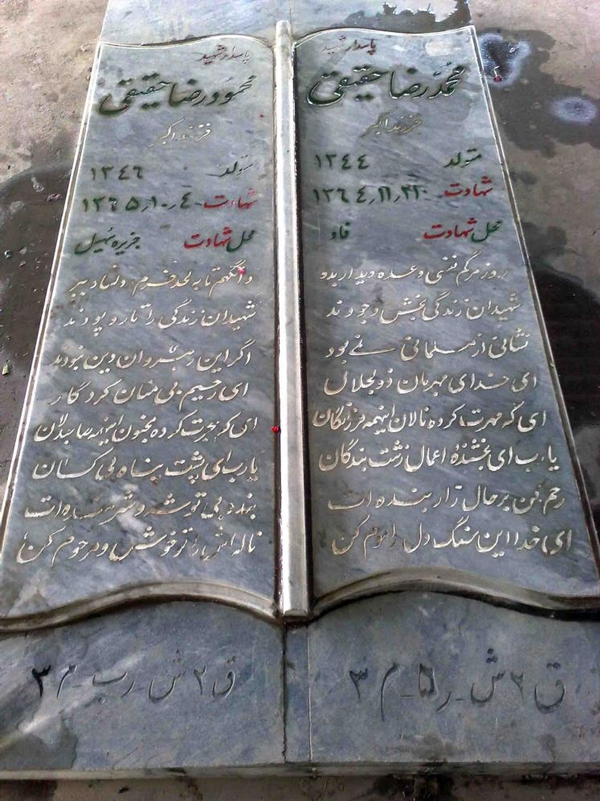 پاسدار شهید
محمدرضا حقیقی
فرزند اکبر
متولد ۱۳۴۴
شهادت ۱۳۶۴٫۱۱٫۲۳
محل شهادت فاو
روز مرگم نفسی وعده دیدار بده
شهیدان زندگی بخش وجودند
نشانی از مسلمانی نبود
ای خدای مهربان ذوالجلال
ای که مهرت کرده نالان اینهمه فرزانگان
یارب ای بخشندهٔ اعمال زشت بندگان
رحم کن بر حال زار بنده ات
ای خدا این سنگ دل را موم کن
ق ۲ ش ـ ر ۵ ـ م ۳
پاسدار شهید
محمود رضا حقیقی
فرزند اکبر
متولد ۱۳۴۶
شهادت ۱۳۶۵٫۱۰٫۴
محل شهادت جزیره سهیل
وانگهم تا به لحد خرم و دلشاد ببر
شهیدان زندگی را تار و پودند
اگر این رهروان دین نبودند
ای رحیم بی کردگار
ای که هجرت کرده مجنون اینهمه
یارب ای پشت پناه بی کسان
بنده بی توشه و شرمنده ات
ناله اش را خوش و مرحوم کن
ق ۲ ش ـ رب ـ م ۳